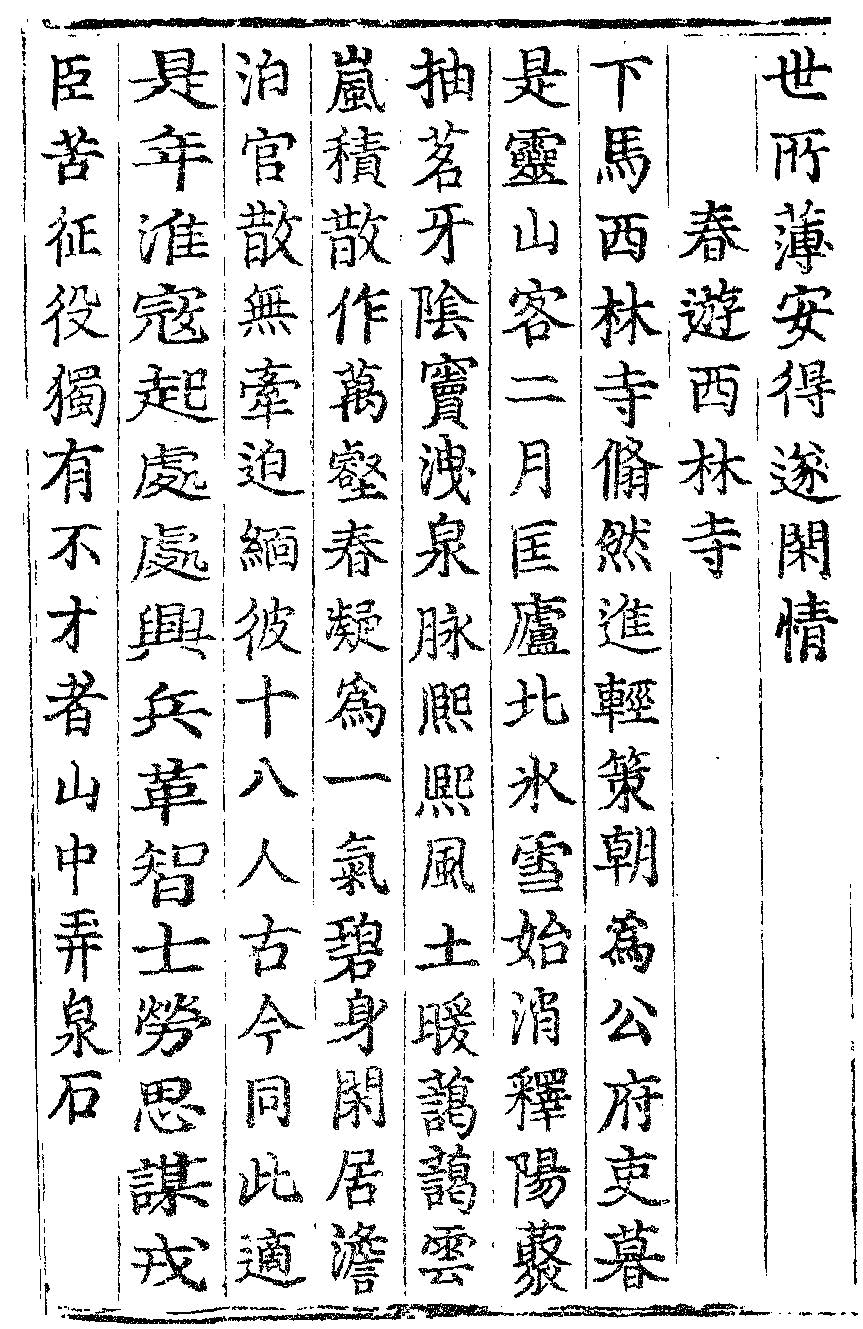 世所薄安得遂閑情
春遊西林寺
下馬西林寺翛然進輕策朝爲公府吏暮
是靈山客二月匡廬北氷雪始消釋陽藂
抽茗牙陰竇洩泉脉熙熙風土暖藹藹雲
嵐積散作萬壑春凝爲一氣碧身閑居澹
泊官散無牽迫緬彼十八人古今同此適
是年淮寇起處處興兵革智士勞思謀戎
臣苦征役獨有不才者山中弄泉石